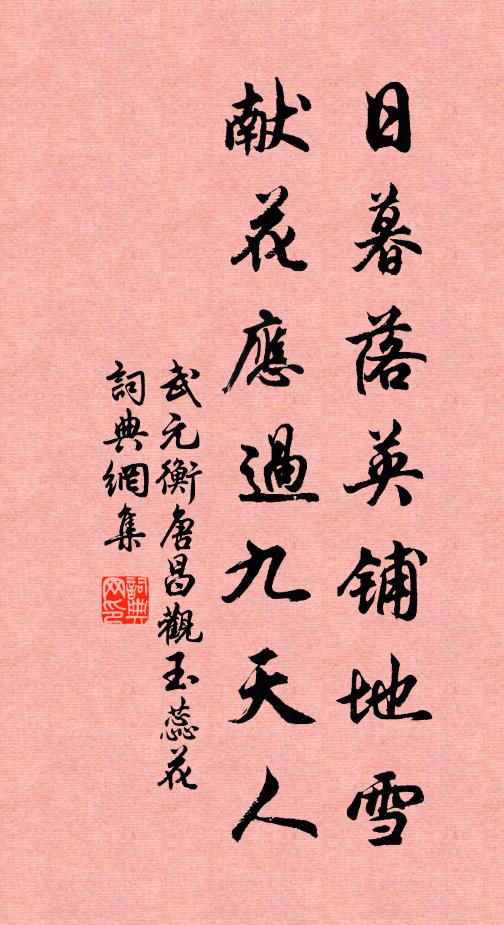 日暮落英铺地雪
献花應過九天人
武元衡唐昌觀玉蕊花
詞典網集
詞典網印